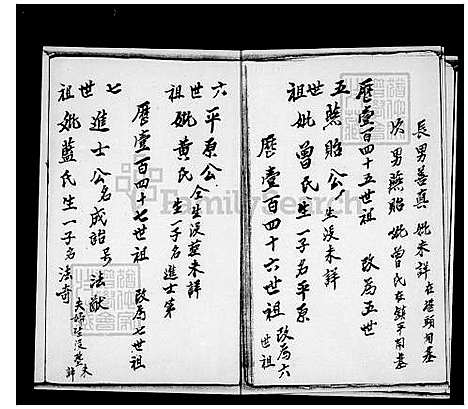 長男善興 妣未詳 在港頭有墓
次男燕貽 妣曾氏 在鎮平有墓
歷壹百四十五世祖 改為五世
五世祖 燕貽公 生沒未詳
妣曾氏生一子名平原
歷壹百四十六世祖 改為六世祖
六世祖 平原公 仝生沒墓未詳
妣黃氏 生一子名進士第
歷壹百四十七世祖 改為七世祖
七世祖 進士公 名成詔号法猷
妣藍氏生一子名法奇 夫婦生沒墓未詳
FamilySearch